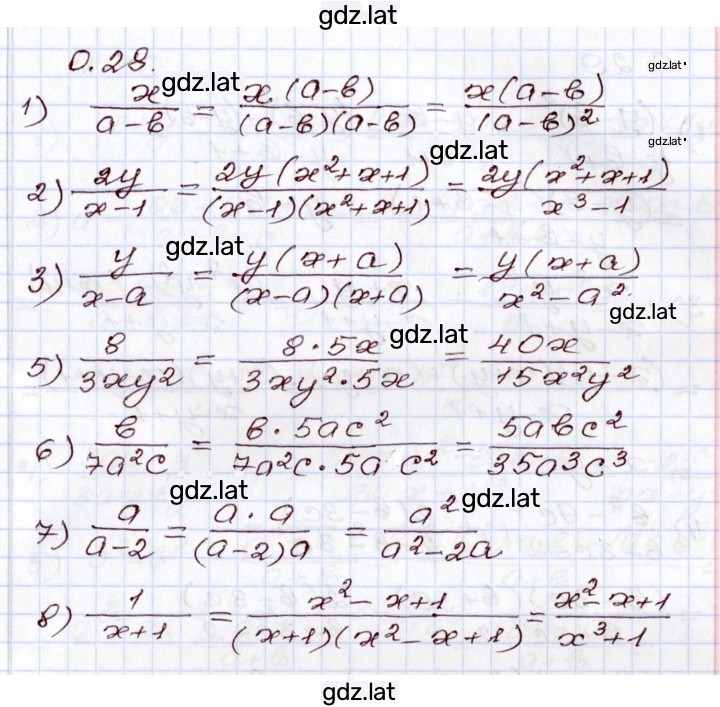 gdz.lat
0.28.
gdz.lat
gdz.lat
1) x/(a-b) = x·(a-b)/((a-b)(a-b)) = x(a-b)/(a-b)²
gdz.lat
gdz.lat
2) 2y/(x-1) = 2y(x²+x+1)/((x-1)(x²+x+1)) = 2y(x²+x+1)/(x³-1)
gdz.lat
3) y/(x-a) = y(x+a)/((x-a)(x+a)) = y(x+a)/(x²-a²)
gdz.lat
gdz.lat
5) 8/(3xy²) = 8·5x/(3xy²·5x) = 40x/(15x²y²)
6) b/(7a²c) = b·5ac²/(7a²c·5ac²) = 5abc²/(35a³c³)
gdz.lat
gdz.lat
7) a/(a-2) = a·a/((a-2)a) = a²/(a²-2a)
8) 1/(x+1) = (x²-x+1)/((x+1)(x²-x+1)) = (x²-x+1)/(x³+1)
gdz.lat